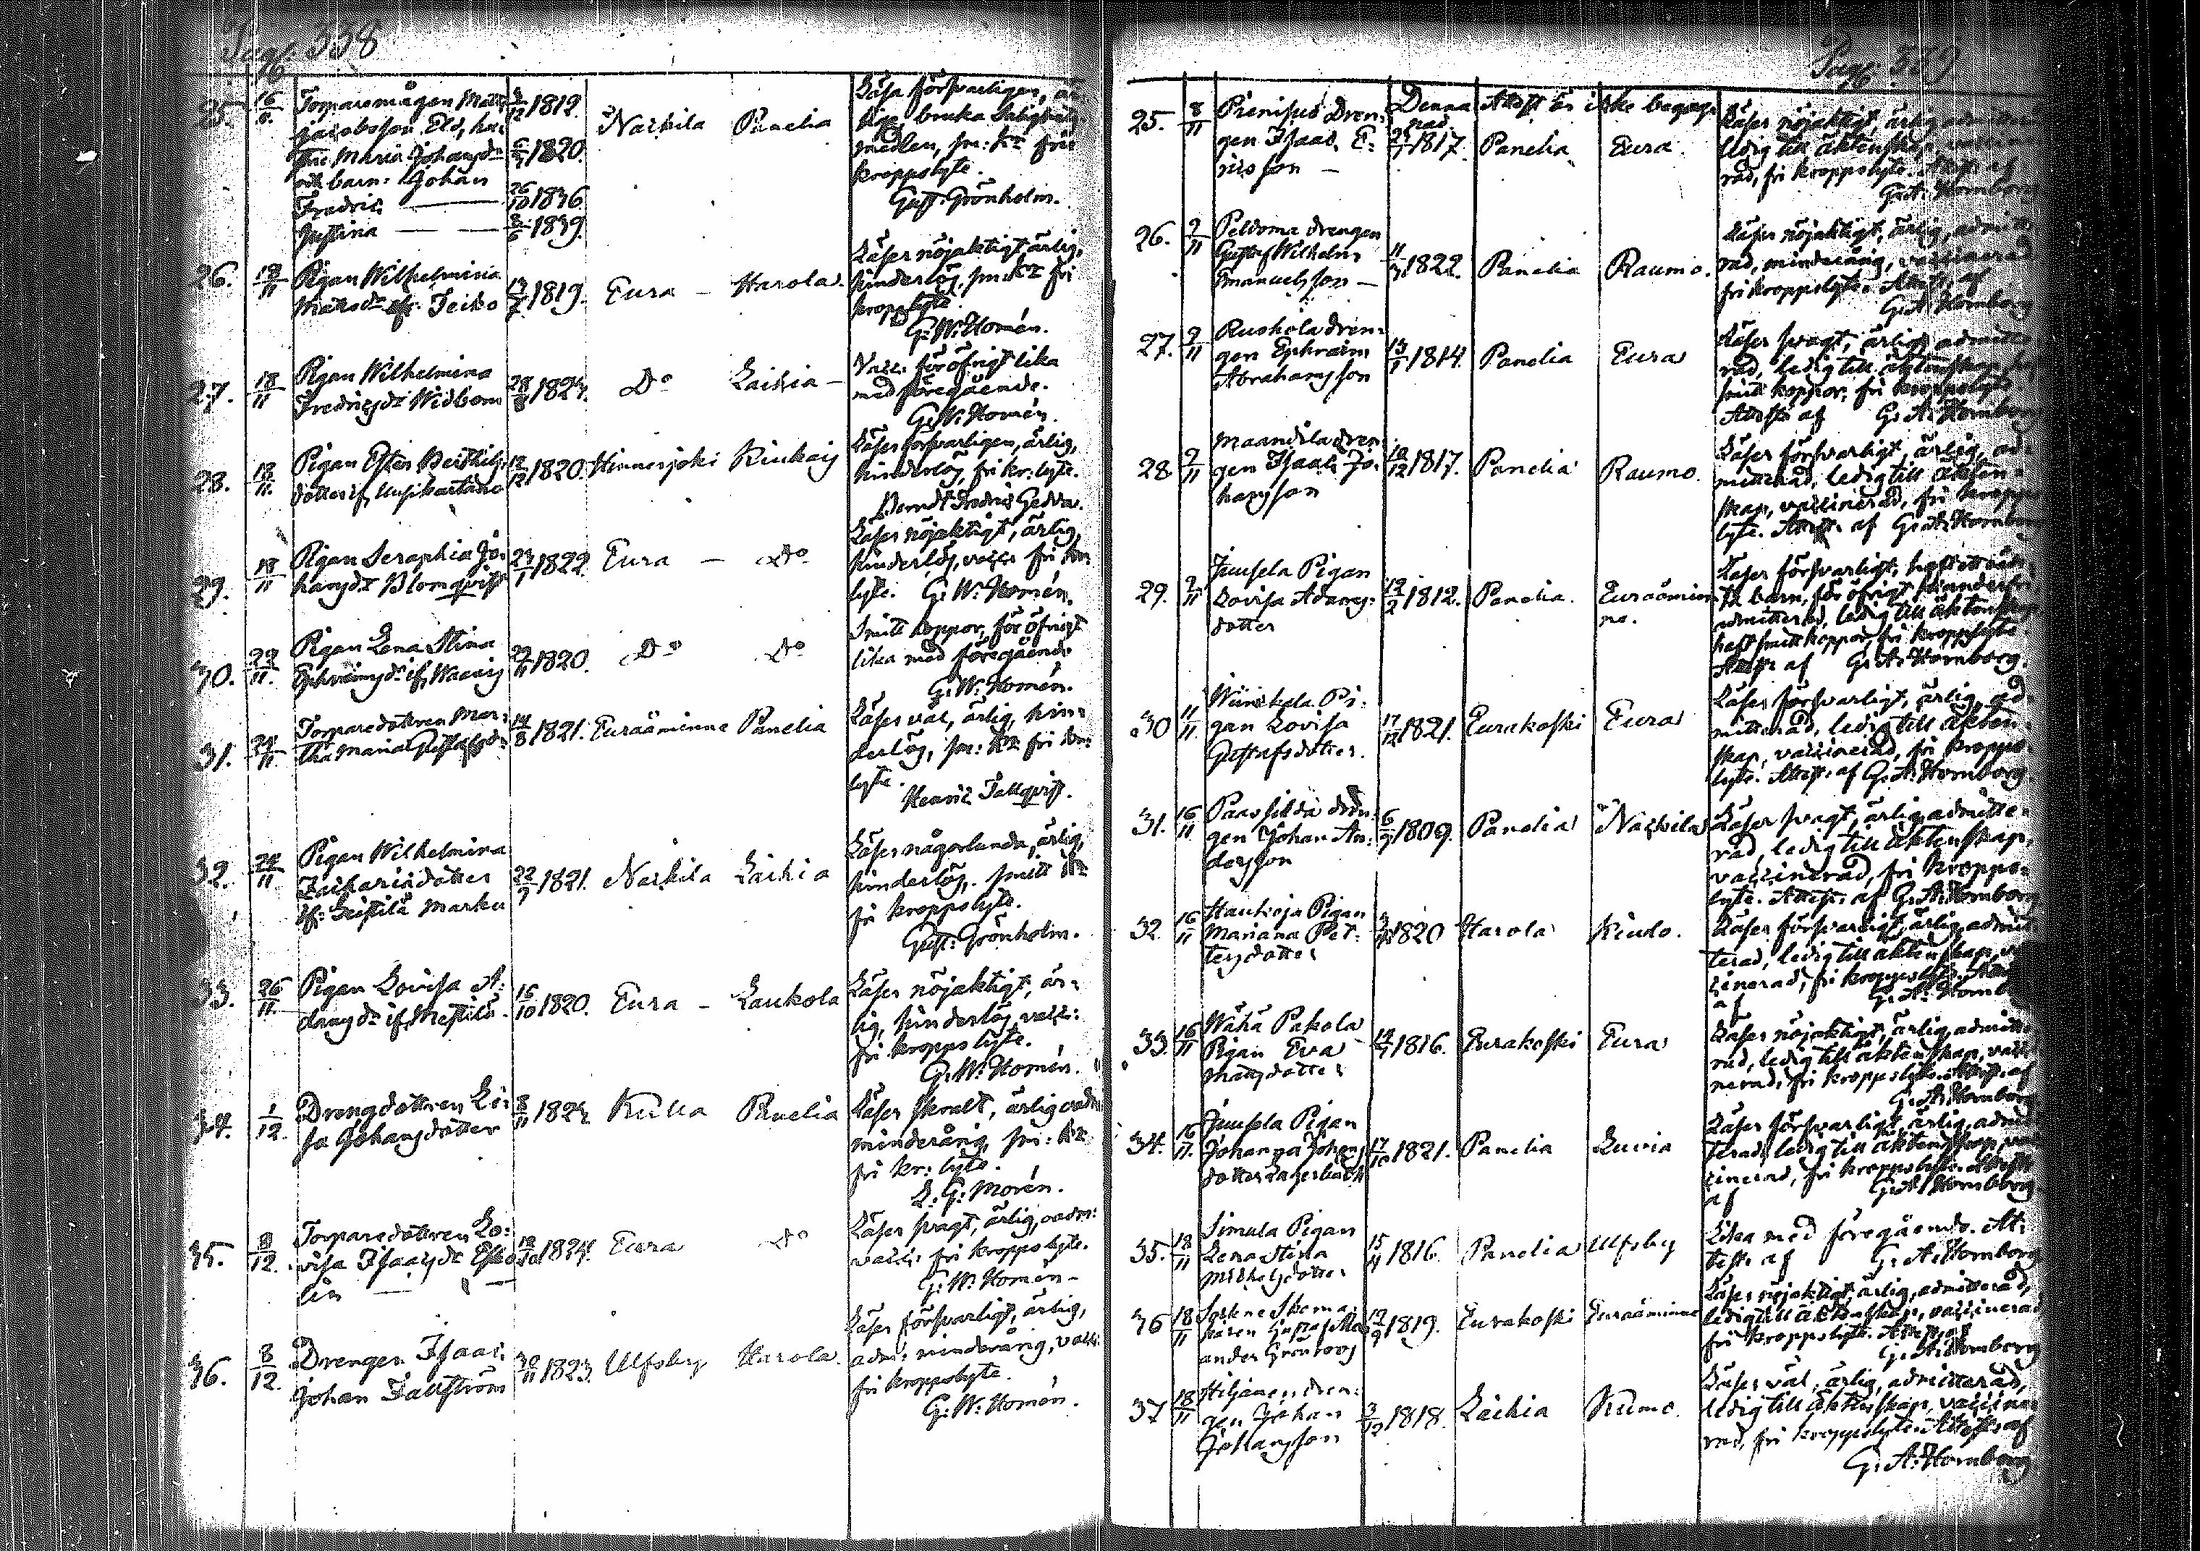 Pag. 338
25. 16/11 Torparemågen Matts
Jacobsson Elo, hu-
stru Maria Johansdr
och barn: Johan
Fredric
Justina
1819.
1820.
26/10 1836
1839.
Nackila Panelia
Läsa försvarligen, är-
lige, bruka salighets
medlen, sm: kr fria
kroppslyte.
Gust. Grönholm.
26. 18/11 Pigan Wilhelmina
Matsdr ifr. Teiko
1819. Eura – Harola.
Läser nöjaktigt, ärlig,
hinderlös, sm: kr fri
kroppslyte.
G. W. Homén.
27. 18/11 Pigan Wilhelmina
Fredricsdr Widbom
1824. Do Laihia –
Vacc. för öfrigt lika
med föregående.
G. W. Homén.
28. 18/11 Pigan Ester Berthils
dotter if. Uusikartano
1820. Hinnerjoki Kiukais
Läser försvarligen, ärlig,
hinderlös, fri kr: lyte.
Berndt Fredric Gedda.
29. 18/11 Pigan Seraphia Jo-
hansdr Blomqvist
1822. Eura – Do
Läser nöjaktigt, ärlig,
hinderlös, vacc: fri kr:
lyte. G. W. Homén.
30. 22/11 Pigan Lena Stina
Ephraimsdr if.
1820. Do Do
Smitt koppor, för öfrigt
lika med föregående
G. W. Homén.
31. 24/11 Torparedottren Mar-
tha Maria Gustafsdr
1821. Euraåminne Panelia
Läser väl, ärlig, hin-
derlös, sm: kr fri kr:
lyte.
Henric Tallqvist.
32. 24/11 Pigan Wilhelmina
Zachariædotter
if: Leistilä Marku
22/7 1821. Nackila Laihia
Läser någorlunda, ärlig,
hinderlös, smitt kr
fri kroppslyte.
Gust: Grönholm.
33. 26/11 Pigan Lovisa A-
damsdr if. Mestilä
16/10 1820. Eura – Laukola
Läser nöjaktigt, är-
lig, hinderlös, vacc:
fri kroppslyte.
G. W. Homén.
34. 1/12 Drengdottren Lo-
sa Johansdotter
8/11 1824 Kiula Panelia
Läser skralt, ärlig, oadm:
minderårig, sm: kr
fri kr: lyte.
L. G: Morén.
35. 8/12 Torparedottren Lo-
visa Isaacsdr
lin
1824. Eura Do
Läser svagt, ärlig, oadm:
vacc: fri kroppslyte.
G. W. Homén –
36. 8/12 Drengen Isaac
Johan Tallström
30/11 1823. Ulfsby Harola.
Läser försvarligt, ärlig,
adm: minderårig, vacc:
fri kroppslyte.
G. W. Homén.
Pag. 339
Denna Attest är icke begag-
nad
25. 8/11 Dren-
gen Isaac E-
nisson –
1817. Panelia Eura
Läser nöjaktigt, ärlig, admitte-
ledig till äktenskap, vaccine-
rad, fri kroppslyte. Attest. af
G. A. Hornborg
26. 9/11 Peldoma drengen
Gustaf Wilhelm
Emanuelsson –
1822. Panelia Raumo.
Läser nöjaktigt, ärlig, admitte-
rad, minderårig, vaccinerad
fri kroppslyte. Attest. af
G. A. Hornborg
27. 9/11 Ruskola dren-
gen Ephraim
Abrahamsson
1814. Panelia Eura
Läser svagt, ärlig, admitte-
rad, ledig till äktenskap, haft
smitt koppor, fri kroppslyte
Attest. af G. A. Hornborg
28. 9/11 Maanila dren-
gen Isaac Jo-
hansson
1817. Panelia Raumo.
Läser försvarligt, ärlig, ad-
mitterad, ledig till äkten-
skap, vaccinerad, fri kropps-
lyte. Attest. af G. A. Hornborg
29. 9/11 Juusela Pigan
Lovisa Adams-
dotter
1812. Panelia. Euraåmin-
ne.
Läser försvarligt, haft ett oäk-
ta barn, för öfrigt
admitterad, ledig till äktenskap,
haft smitt koppor, fri kroppslyte.
Attest. af G. A. Hornborg.
30. 11/11 Pi-
gan Lovisa
Gustafsdotter.
17/12 1821. Eurakoski Eura
Läser försvarligt, ärlig, ad-
mitterad, ledig till äkten-
skap, vaccinerad, fri kropps-
lyte. Attest. af G. A. Hornborg
31. 16/11 Paavilda dren-
gen Johan An-
dersson
1809. Panelia Nackila
Läser svagt, ärlig, admitte-
rad, ledig till äktenskap,
vaccinerad, fri kropps-
lyte. Attest. af G. A. Hornborg
32. 16/11 Hankoja Pigan
Mariana Pet-
tersdotter
1820 Harola Kiulo.
Läser försvarligt, ärlig, admit-
terad, ledig till äktenskap, vac-
cinerad, fri kroppslyte. Attest
af G. A. Hornborg
33 16/11 Wähä Pakola
Pigan Eva
Mattsdotter
1816. Eurakoski Eura
Läser nöjaktigt, ärlig, admitte-
rad, ledig till äktenskap, vacci-
nerad, fri kroppslyte. Attest. af
G. A. Hornborg
34. 16/11 Juusela Pigan
Johanna Johans
dotter Lagerbäck
17/10 1821. Panelia Luvia
Läser försvarligt, ärlig, admit-
terad, ledig till äktenskap, vac-
cinerad, fri kroppslyte. Attest
af G. A. Hornborg
35. 18/11 Simula Pigan
Lena Stina
Michelsdotter
1816. Panelia Ulfsby
Lika med föregående. At-
test. af G. A. Hornborg
36 18/11
ander Grönroos
1819. Eurakoski Euraåminne
Läser nöjaktigt, ärlig, admitterad,
ledig till äktenskap, vaccinerad
fri kroppslyte. Attest. af
G. A. Hornborg
37 18/11 dren-
gen Johan
Johansson
3/12 1818. Laihia Kumo.
Läser väl, ärlig, admitterad,
ledig till äktenskap, vaccine-
rad, fri kroppslyte. Attest. af
G. A. Hornborg